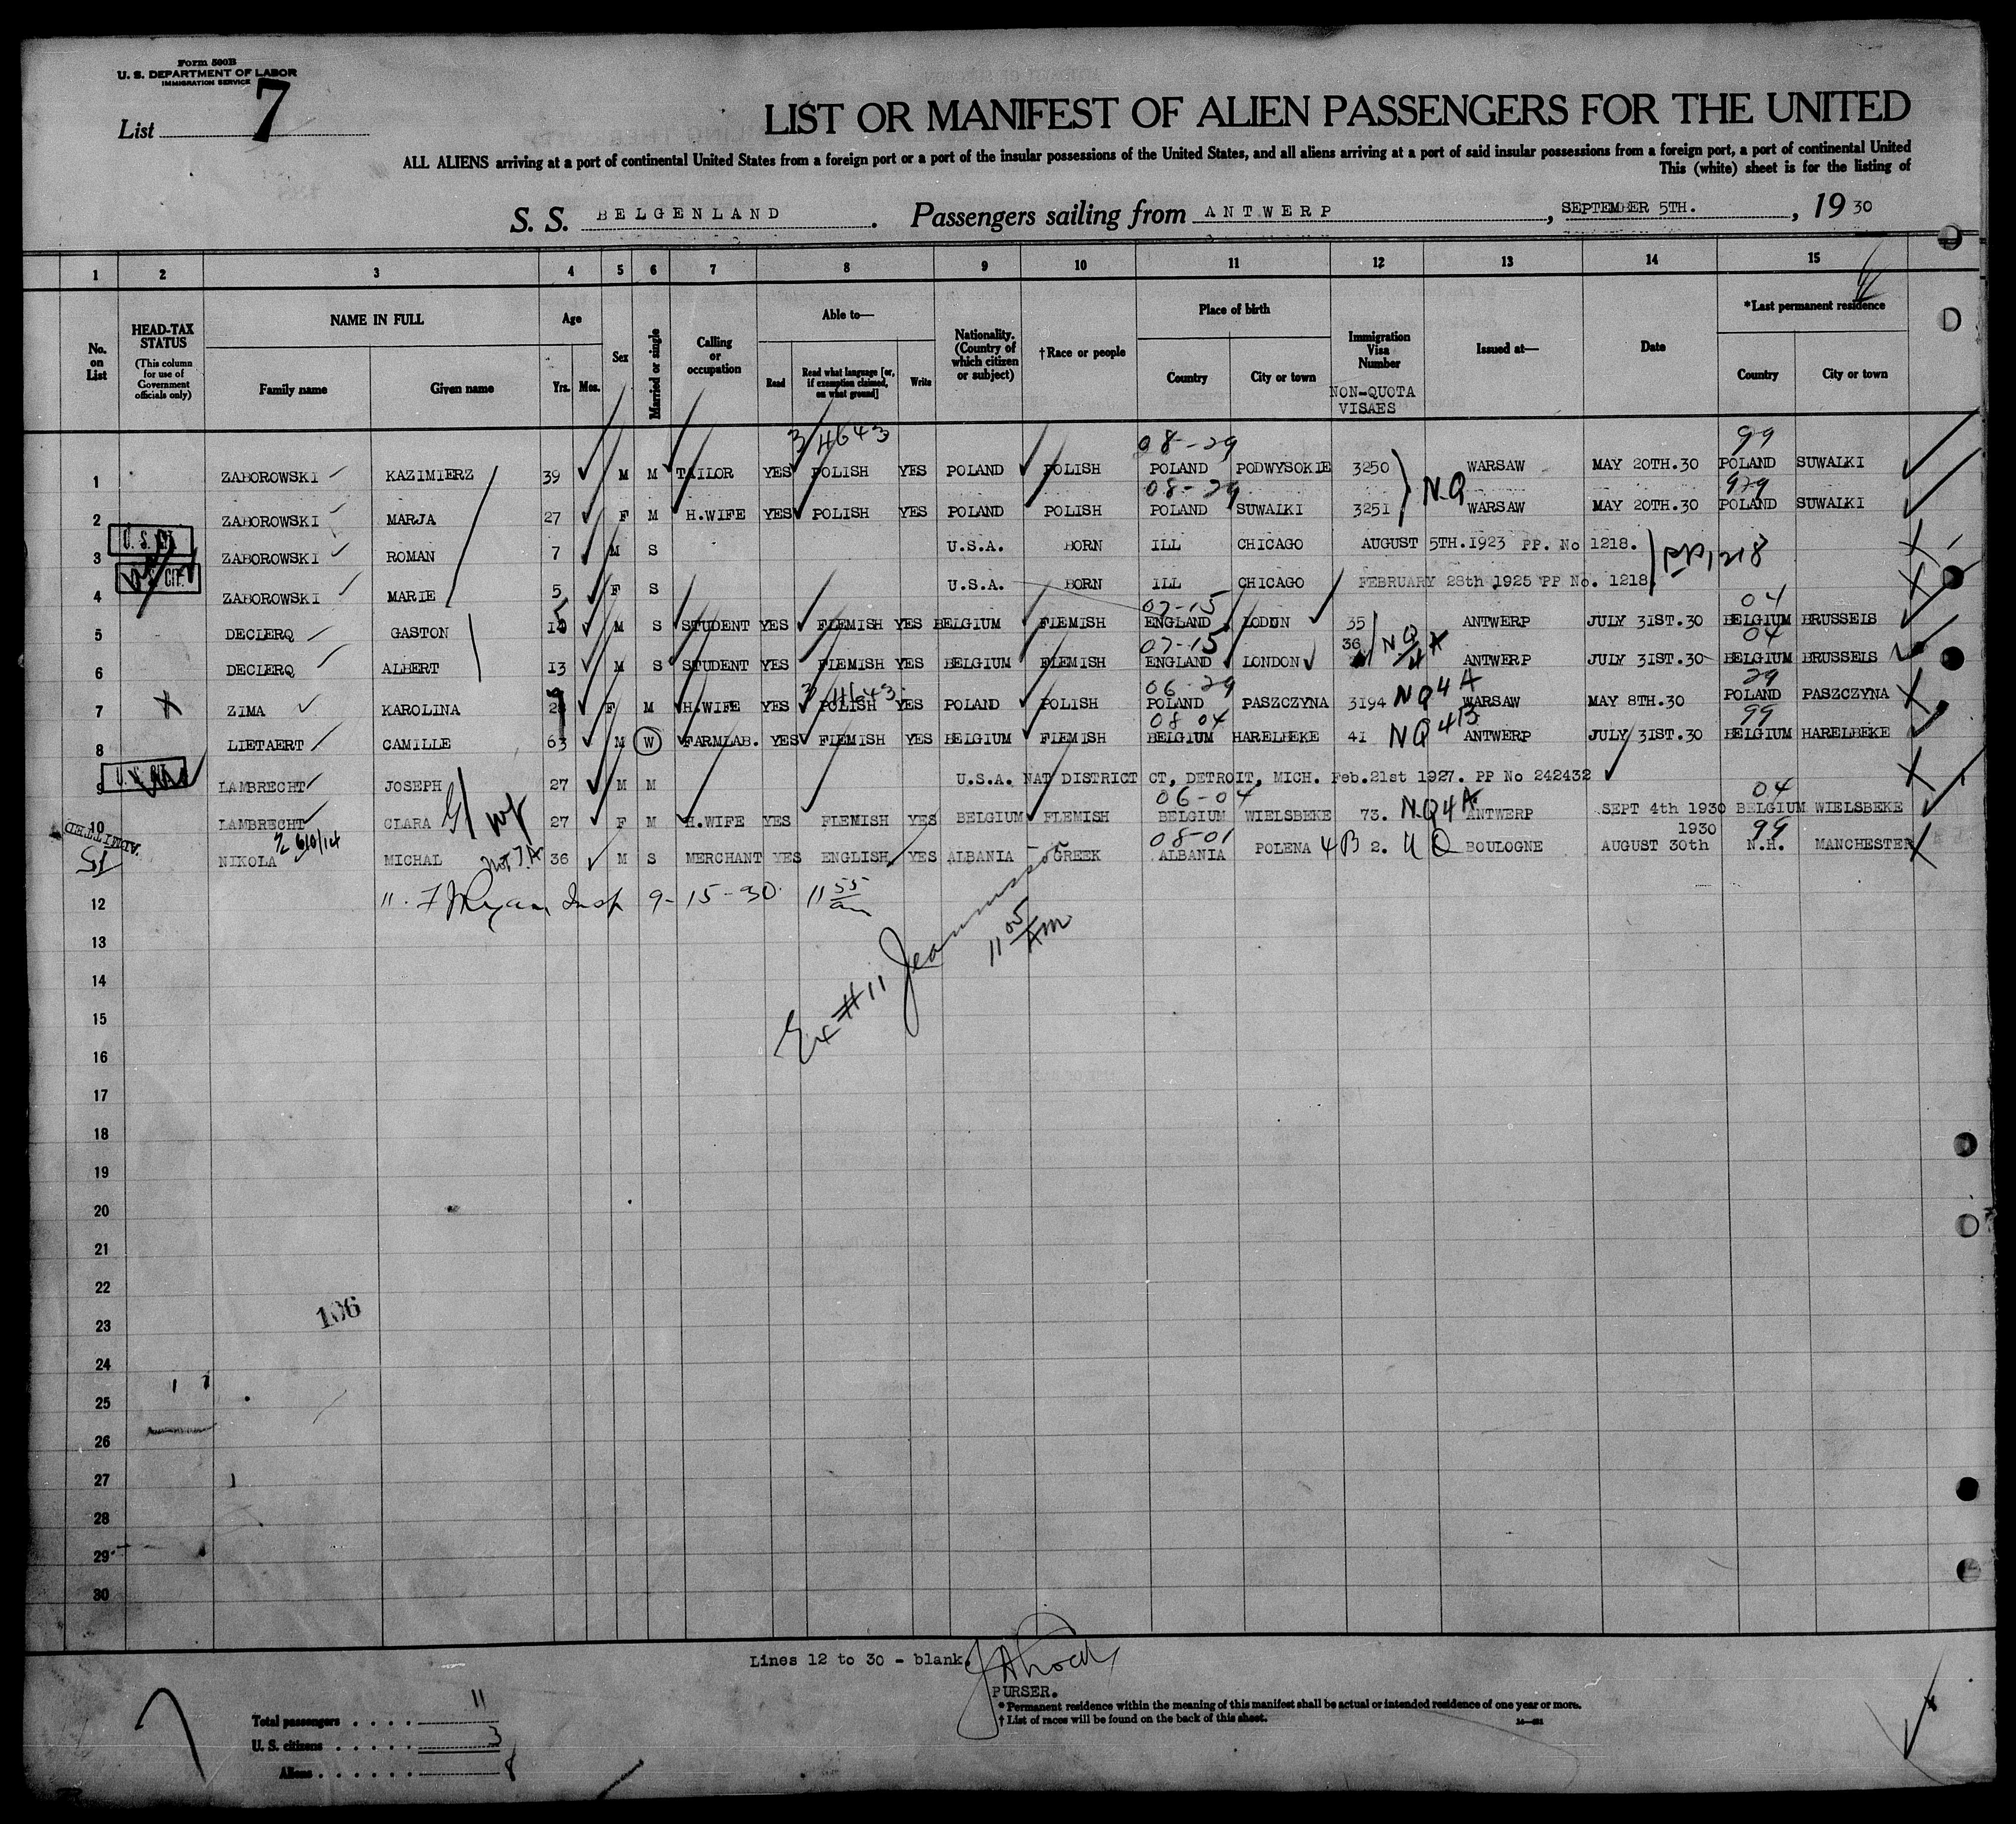 Form 500B
U. S. DEPARTMENT OF LABOR
IMMIGRATION SERVICE
List 7
LIST OR MANIFEST OF ALIEN PASSENGERS FOR THE UNITED
ALL ALIENS arriving at a port of continental United States from a foreign port or a port of the insular possessions of the United States, and all aliens arriving at a port of said insular possessions from a foreign port, a port of continental United
This (white) sheet is for the listing of
S. S. BELGENLAND. Passengers sailing from ANTWERP, SEPTEMBER 5TH., 19 30
1 2 3 4 5 6 7 8 9 10 11 12 13 14 15
No. on List HEAD-TAX STATUS (This column for use of Government officials only) NAME IN FULL Family name Given name Age Yrs. Mos. Sex Married or single Calling or occupation Able to— Read Read what language [or, if exemption claimed, on what ground] Write Nationality. (Country of which citizen or subject) †Race or people Place of birth Country City or town Immigration Visa Number NON-QUOTA VISAES Issued at— Date *Last permanent residence Country City or town
34643 08-29 99
1 ZABOROWSKI KAZIMIERZ 39 M M TAILOR YES POLISH YES POLAND POLISH POLAND PODWYSOKIE 3250 NQ WARSAW MAY 20TH.30 POLAND SUWALKI
08-29 929
2 ZABOROWSKI MARJA 27 F M H.WIFE YES POLISH YES POLAND POLISH POLAND SUWALKI 3251 WARSAW MAY 20TH.30 POLAND SUWALKI
3 U. S. CIT. ZABOROWSKI ROMAN 7 M S U.S.A. BORN ILL CHICAGO AUGUST 5TH.1923 PP. No 1218. PP1218
4 U. S. CIT. ZABOROWSKI MARIE 5 F S U.S.A. BORN ILL CHICAGO FEBRUARY 28th 1925 PP No. 1218.
07-15 04
5 DECLERQ GASTON M S STUDENT YES FLEMISH YES BELGIUM FLEMISH ENGLAND LODON 35 ANTWERP JULY 31ST.30 BELGIUM BRUSSELS
07-15 04
6 DECLERQ ALBERT 13 M S STUDENT YES FLEMISH YES BELGIUM FLEMISH ENGLAND LONDON 36 NQ 4A ANTWERP JULY 31ST.30 BELGIUM BRUSSELS
34643 06-29 29
7 ZIMA KAROLINA F M H.WIFE YES POLISH YES POLAND POLISH POLAND PASZCZYNA 3194 NQ4A WARSAW MAY 8TH.30 POLAND PASZCZYNA
08 04 99
8 LIETAERT CAMILLE 63 M W FARMLAB. YES FLEMISH YES BELGIUM FLEMISH BELGIUM HARELBEKE 41 NQ4B ANTWERP JULY 31ST.30 BELGIUM HARELBEKE
9 U. S. CIT. LAMBRECHT JOSEPH 27 M M U.S.A. NAT DISTRICT CT, DETROIT, MICH. Feb.21st 1927. PP No 242432
06-04 04
10 LAMBRECHT CLARA 27 F M H.WIFE YES FLEMISH YES BELGIUM FLEMISH BELGIUM WIELSBEKE 73. NQ4A ANTWERP SEPT 4th 1930 BELGIUM WIELSBEKE
ADMITTED 08-01 1930 99
NIKOLA MICHAL 36 M S MERCHANT YES ENGLISH YES ALBANIA GREEK ALBANIA POLENA 4B 2. BOULOGNE AUGUST 30th N.H. MANCHESTER
12 Insp 9-15-30 11 55 am
13 Ex #11 11 05 AM
14
15
16
17
18
19
20
21
22
23 106
24
25
26
27
28
29
30
Lines 12 to 30 - blank.
PURSER.
* Permanent residence within the meaning of this manifest shall be actual or intended residence of one year or more.
† List of races will be found on the back of this sheet.
Total passengers . . . . 11
U. S. citizens . . . . . 3
Aliens . . . . . . 8